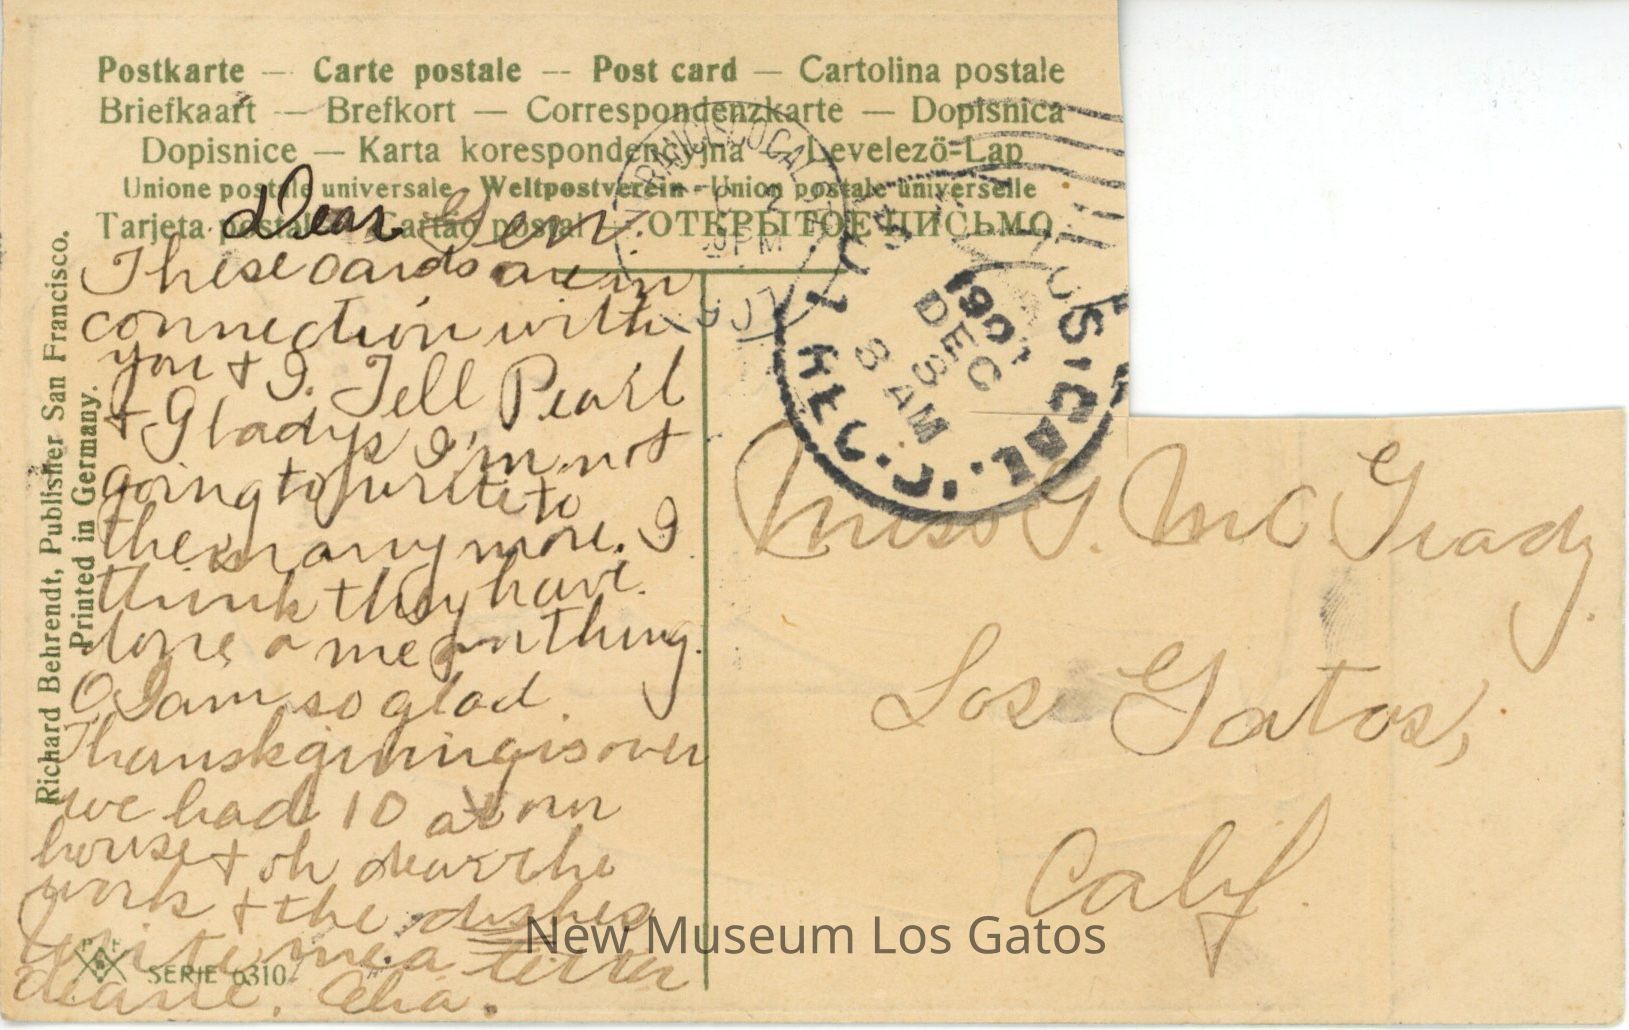 Postkarte — Carte postale — Post card — Cartolina postale
Briefkaart — Brefkort — Correspondenzkarte — Dopisnica
Dopisnice — Karta korespondencyjna — Levelezö-Lap
Unione postale universale - Weltpostverein - Union postale universelle
Tarjeta postal — Cartão postal — ОТКРЫТОЕ ПИСЬМО
Richard Behrendt, Publisher San Francisco.
Printed in Germany.
FRANCISCO CAL
2
PM
1907
LOS CAL.
REC'D.
1907
DEC
3
8 AM
Dear Gem.
These cards are in
connection with
you & I. Tell Pearl
& Gladys I'm not
going to write to
them any more. I
think they have
done a mean thing.
O I am so glad
Thanskgiving is over
we had 10 at our
house & oh dear the
work & the dishes
Write me a letter
dearie. Celia.
P F
SERIE 6310
Miss G. McGrady
Los Gatos,
Calif.
New Museum Los Gatos